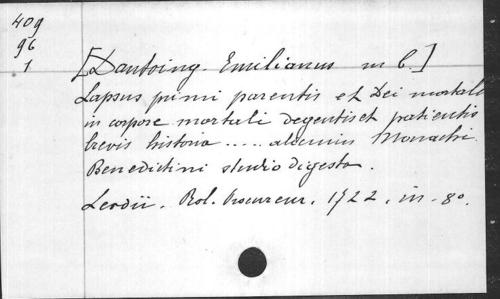 409
96
1
[Dantoing. Emilianus m C.]
Lapsus primi parentis et Dei mortali
in corpore mortali degentis et patientis
brevis historia ..... alterius Monachi
Benedictini studio digesta.
Leodii. Rol. Procureur. 1722, in-8o.